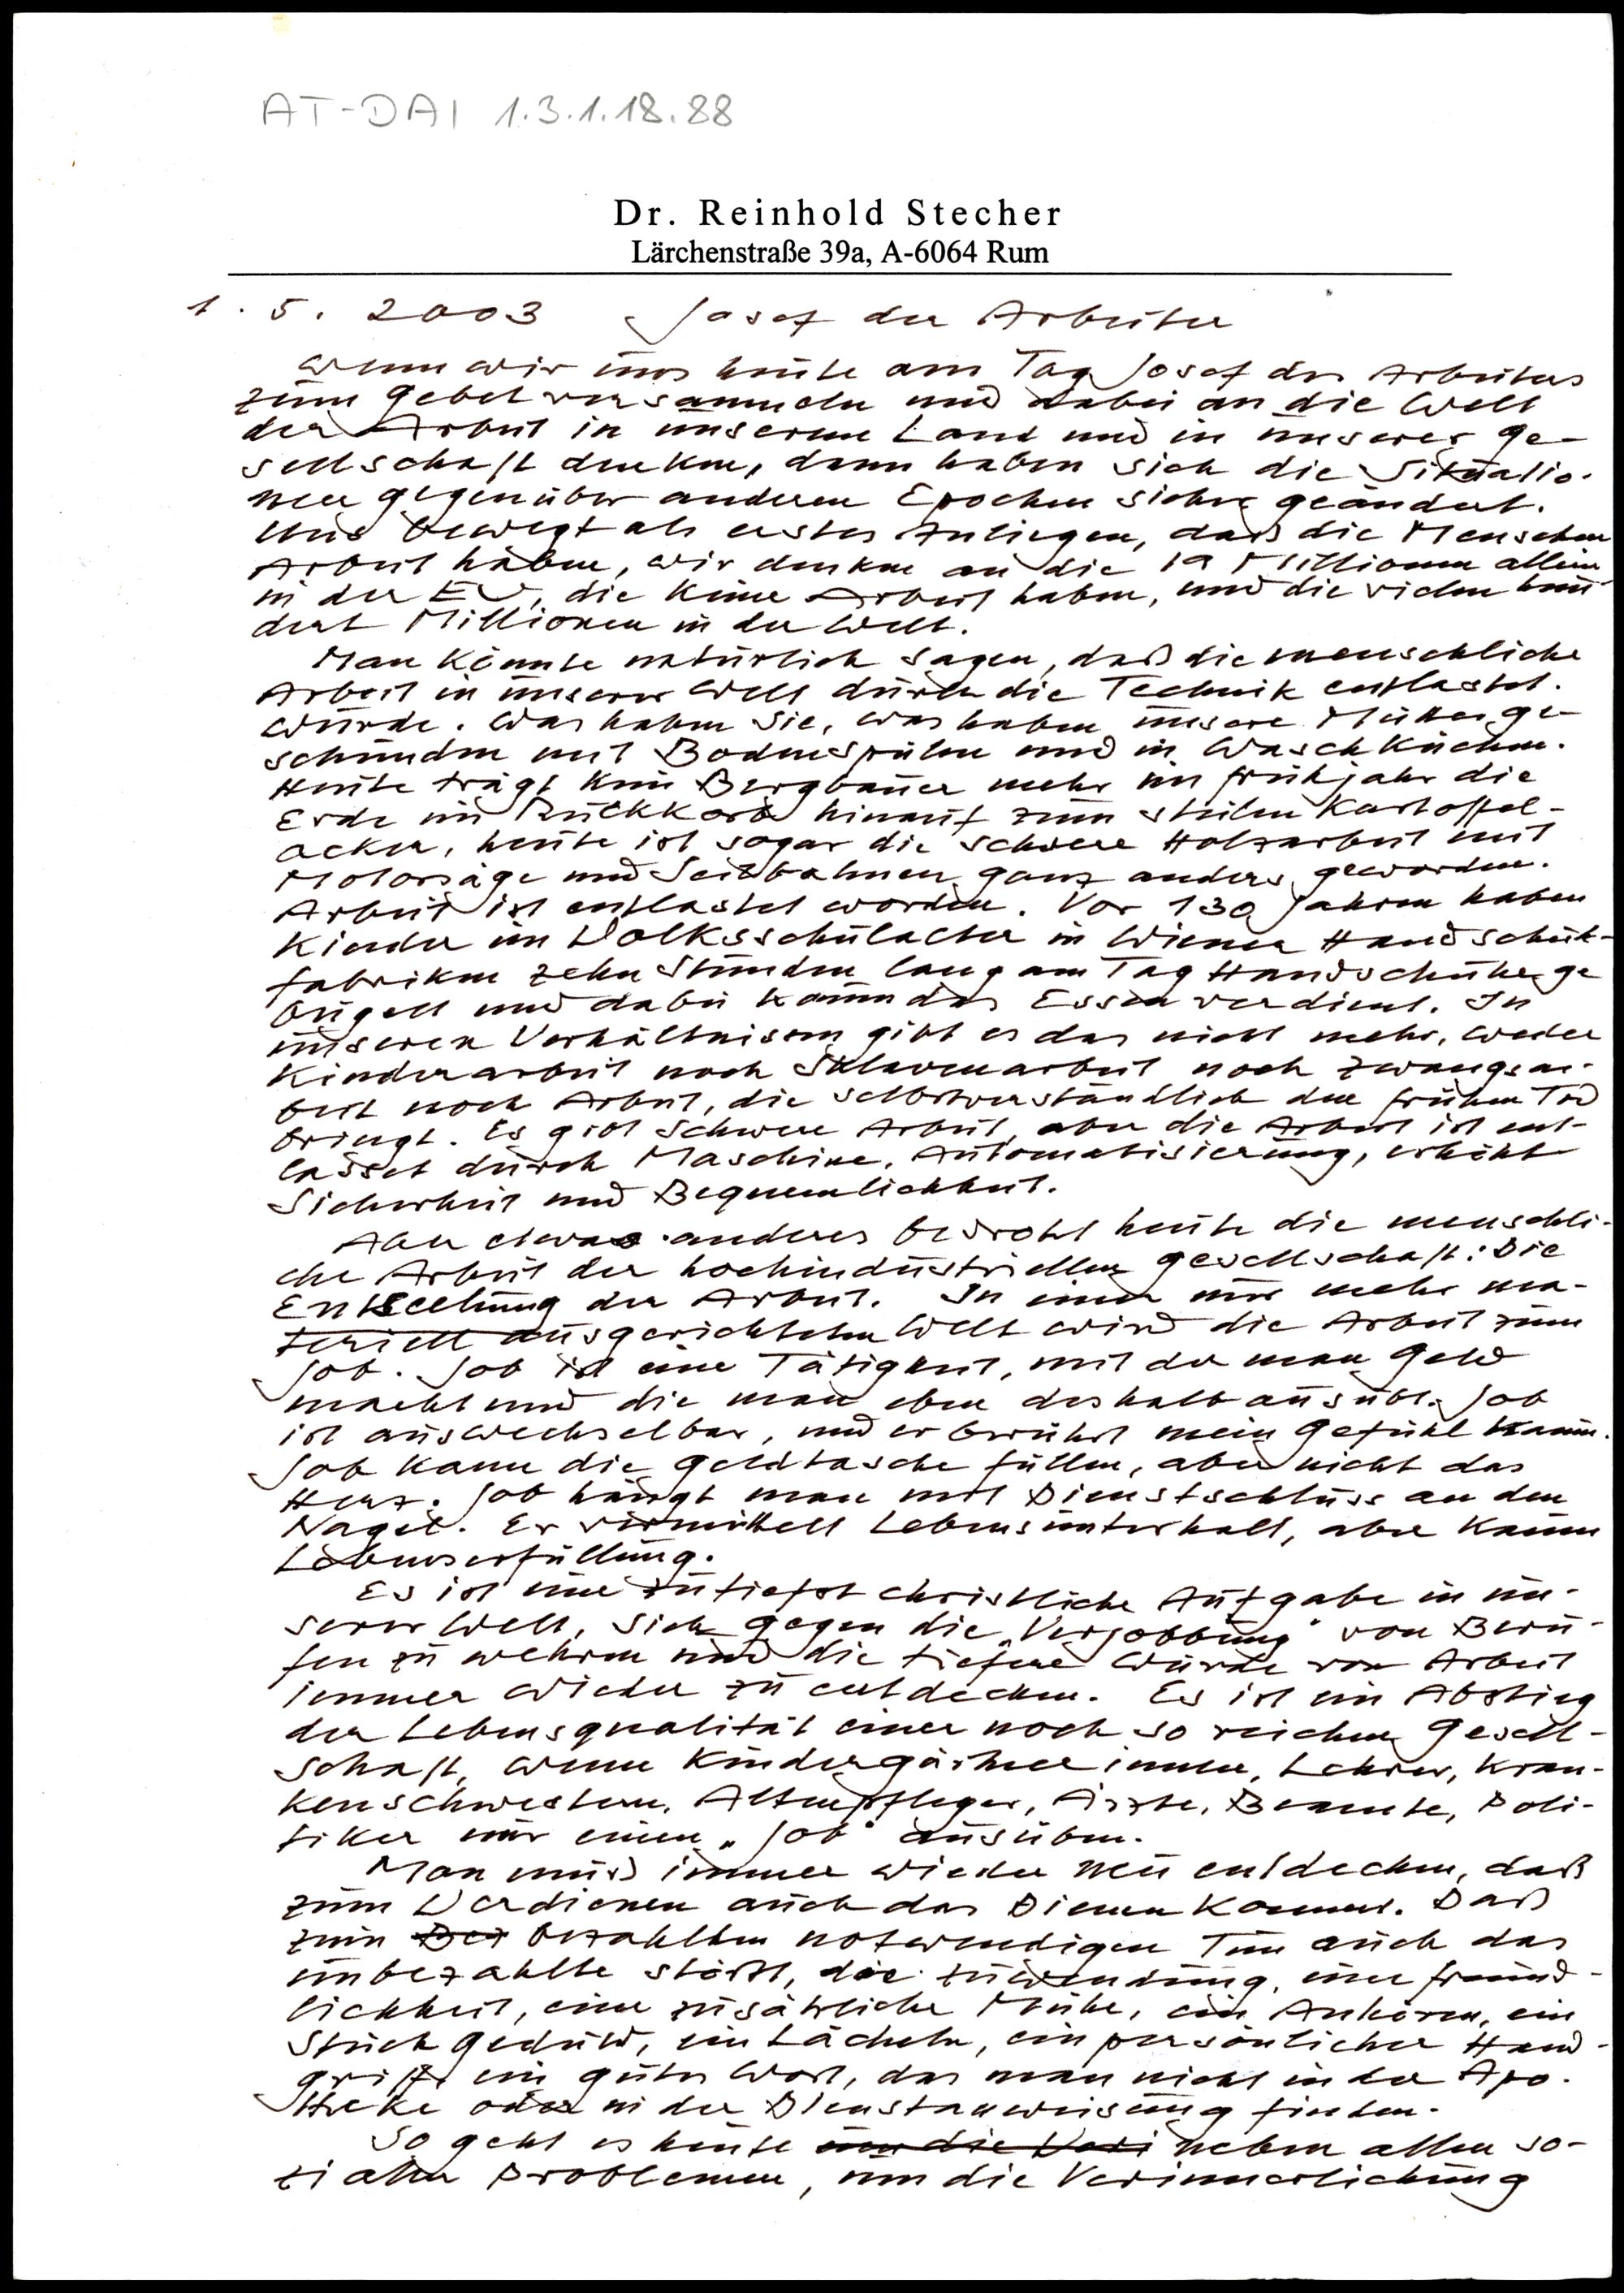 AT-DAI 1.3.1.18.88
Dr. Reinhold Stecher
Lärchenstraße 39a, A-6064 Rum
1. 5. 2003 Josef der Arbeiter
Wenn wir uns heute am Tag Josef des Arbeiters
zum Gebet versammeln und dabei an die Welt
der Arbeit in unserem Land und in unserer Ge-
sellschaft denken, dann haben sich die Situatio-
nen gegenüber anderen Epochen sicher geändert.
Uns bewegt als erstes Anliegen, daß die Menschen
Arbeit haben, wir denken an die 19 Millionen allein
in der EU, die keine Arbeit haben, und die vielen hun-
dert Millionen in der Welt.
Man könnte natürlich sagen, daß die menschliche
Arbeit in unserer Welt durch die Technik entlastet.
wurde. Was haben Sie, was haben unsere Mütter ge-
schunden mit Bodenspülen und in Waschküchen.
Heute trägt kein Bergbauer mehr im Frühjahr die
Erde im Rückkorb hinauf zum steilen Kartoffel-
acker, heute ist sogar die schwere Holzarbeit mit
Motorsäge und Seilbahnen ganz anders geworden.
Arbeit ist entlastet worden. Vor 130 Jahren haben
Kinder im Volksschulalter in Wiener Handschuh-
fabriken zehn Stunden lang am Tag Handschuhe ge
bügelt und dabei kaum das Essen verdient. In
unseren Verhältnissen gibt es das nicht mehr, weder
Kinderarbeit noch Sklavenarbeit noch Zwangsar-
beit noch Arbeit, die selbstverständlich den frühen Tod
bringt. Es gibt schwere Arbeit, aber die Arbeit ist ent-
lastet durch Maschine, Automatisierung, erhöht
Sicherheit und Bequemlichkeit.
Aber etwas anderes bedroht heute die menschli-
che Arbeit der hochindustriellen Gesellschaft: Die
Entseelung der Arbeit. In einer nur mehr ma-
teriell ausgerichteten Welt wird die Arbeit zum
Job. Job ist eine Tätigkeit, mit der man Geld
macht und die man eben deshalb ausübt. Job
ist auswechselbar, und er berührt mein Gefühl kaum.
Job kann die Geldtasche füllen, aber nicht das
Herz. Job hängt man mit Dienstschluss an den
Nagel. Er vermittelt Lebensunterhalt, aber kaum
Lebenserfüllung.
Es ist eine zutiefst christliche Aufgabe in un-
serer Welt, sich gegen die „Verjobbung" von Beru-
fen zu wehren und die tiefere Würde von Arbeit
immer wieder zu entdecken. Es ist ein Abstieg
der Lebensqualität einer noch so reichen Gesell-
schaft, wenn Kindergärtnerinnen, Lehrer, Kran-
kenschwestern, Altenpfleger, Ärzte, Beamte, Poli-
tiker nur einen „Job" ausüben.
Man muß immer wieder neu entdecken, daß
zum Verdienen auch das Dienen kommt. Daß
zum Bez bezahlten notwendigen Tun auch das
unbezahlte stößt, die Zuwendung, eine Freund-
lichkeit, eine zusätzliche Mühe, ein Anhören, ein
Stück Geduld, ein Lächeln, ein persönlicher Hand-
griff, ein gutes Wort, das man nicht in der Apo-
theke oder in der Dienstanweisung finden.
So geht es heute um die Veri neben allen so-
zialen Problemen, um die Verinnerlichung